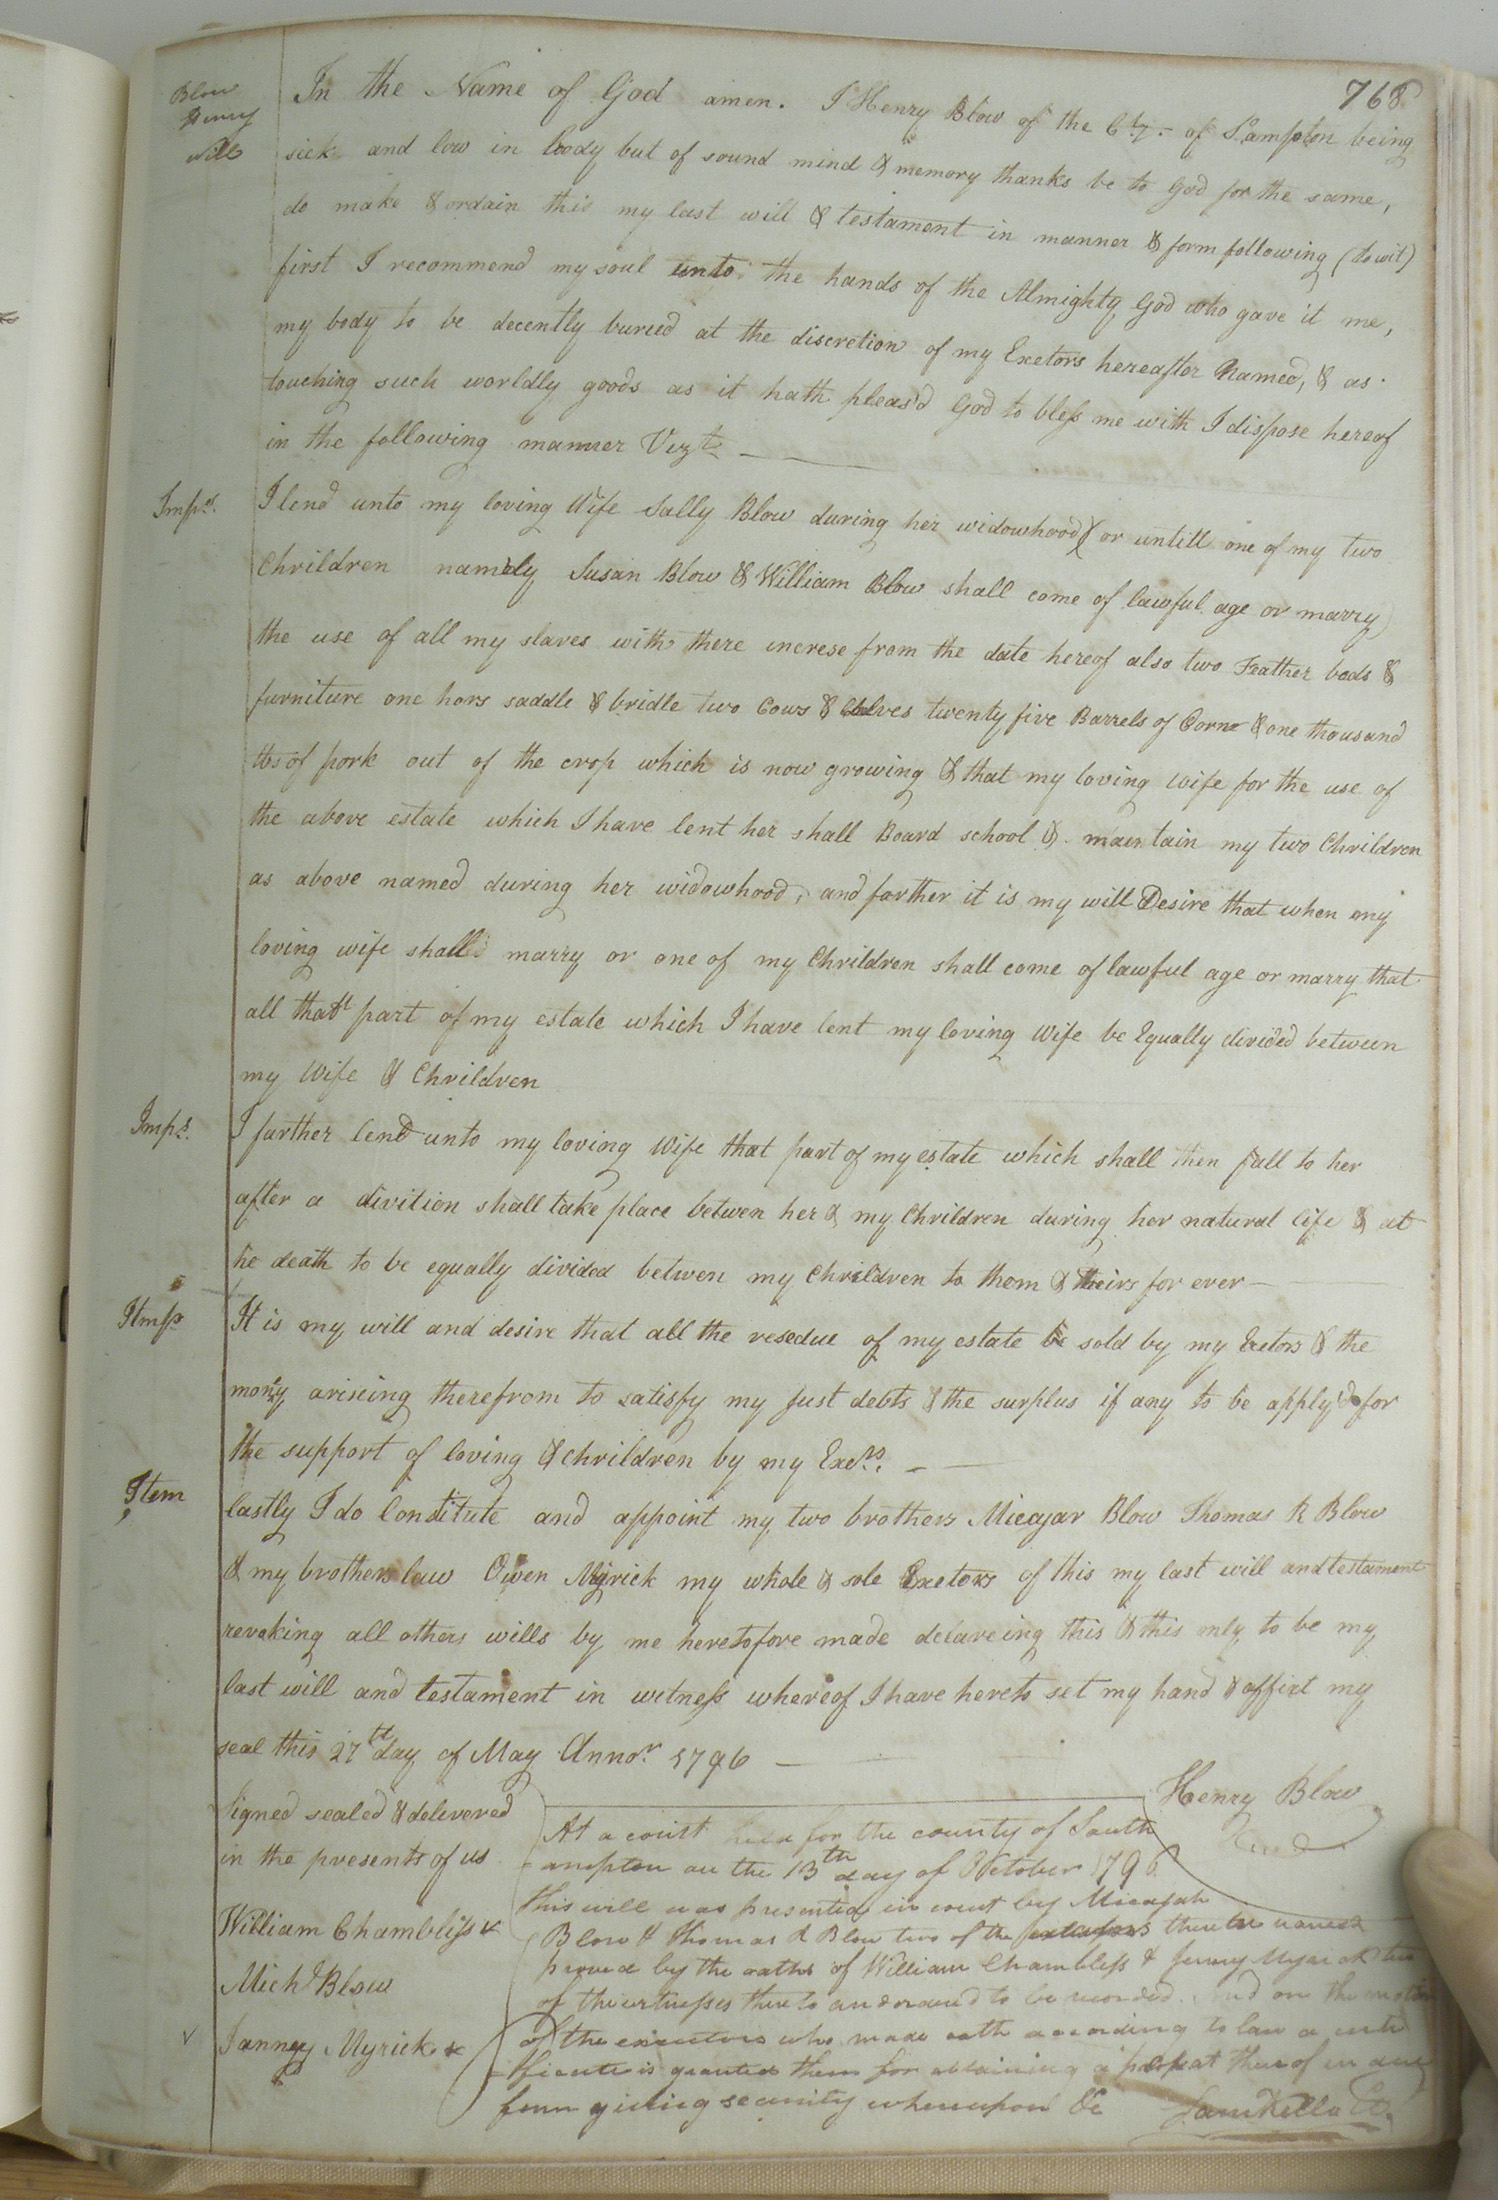 768
Blow
Henry
will
In the Name of God amen. I Henry Blow of the Cty. of S.ampton being
sick and low in body but of sound mind & memory thanks be to God for the same,
do make & ordain this my last will & testament in manner & form following (to wit)
first I recommend my soul unto the hands of the Almighty God who gave it me,
my body to be decently buried at the discretion of my Exetors hereafter Named, & as
touching such worldly goods as it hath pleas'd God to bless me with I dispose hereof
in the following manner Vizt.
Imps. I lend unto my loving Wife Sally Blow during her widowhood (or untill one of my two
Chrildren namely Susan Blow & William Blow shall come of lawful age or marry)
the use of all my slaves with there increse from the date hereof also two Feather beds &
furniture one hors saddle & bridle two Cows & Calves twenty five Barrels of Corne & one thousand
lbs of pork out of the crop which is now growing & that my loving wife for the use of
the above estate which I have lent her shall Board school & maintain my two Chrildren
as above named during her widowhood, and farther it is my will Desire that when my
loving wife shall marry or one of my Chrildren shall come of lawful age or marry that
all that part of my estate which I have lent my loving Wife be Equally divided between
my Wife & Chrildren
Imps. I farther lend unto my loving Wife that part of my estate which shall then fall to her
after a divition shall take place betwen her & my Chrildren during her natural life & at
he death to be equally divided betwen my Chrildren to them & theirs for ever
Itmp It is my will and desire that all the resedue of my estate be sold by my Exetors & the
money ariseing therefrom to satisfy my just debts & the surplus if any to be apply'd for
the support of loving & chrildren by my Exers.
Item lastly I do Constitute and appoint my two brothers Micajar Blow Thomas R Blow
& my brothers law Owen Myrick my whole & sole Exetors of this my last will and testament
revoking all others wills by me heretofore made delareing this & this only to be my
last will and testament in witness whereof I have hereto set my hand & affixt my
seal this 27th day of May Annor 1796
Henry Blow
Signed sealed & delivered
in the presents of us
William Chambliss x
Michl Blow
Janney Myrick x
At a court held for the county of South
ampton on the 13th day of October 1796
this will was presented in court by Micajah
Blow & Thomas R Blow two of the executors therein named
proved by the oaths of William Chambless & Jenny Myrick two
of the witnesses thereto and ordered to be recorded. And on the motion
of the executors who made oath according to law a certi
ficate is granted them for obtaining a probat thereof in due
form giving security whereupon &c
Sam Kello Ct.